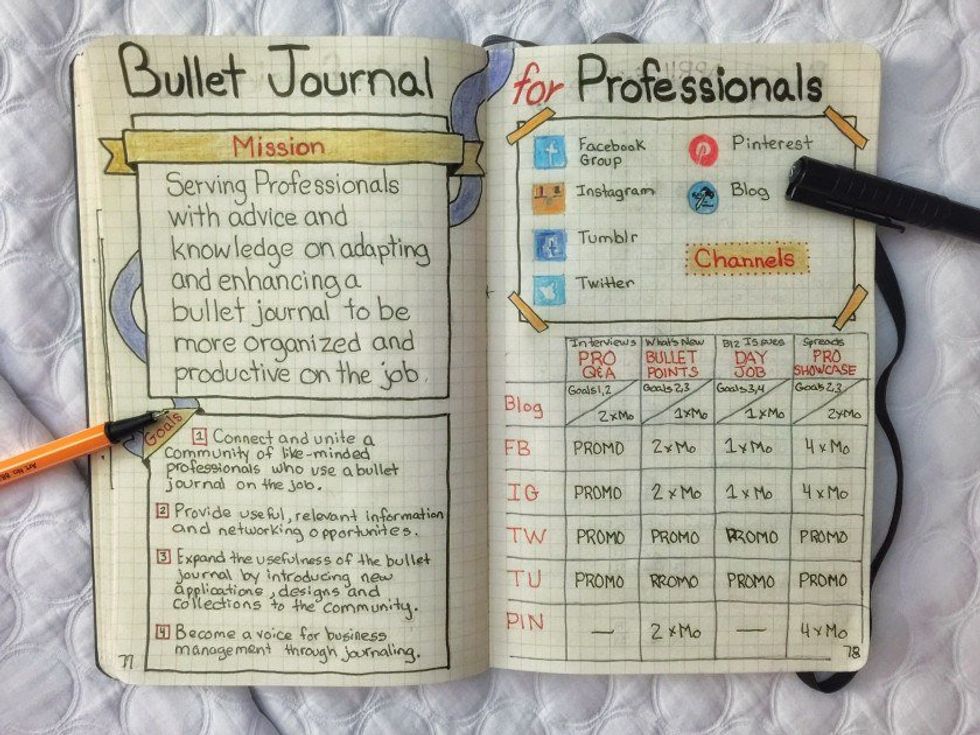 Bullet Journal
Mission
Serving Professionals
with advice and
knowledge on adapting
and enhancing a
bullet journal to be
more organized and
productive on the job.
Goals
1 Connect and unite a
community of like-minded
professionals who use a bullet
journal on the job.
2 Provide useful, relevant information
and networking opportunites.
3 Expand the usefulness of the bullet
journal by introducing new
applications, designs and
collections to the community.
4 Become a voice for business
management through journaling.
77
for Professionals
Facebook
Group
Instagram
Tumblr
Twitter
Pinterest
Blog
Channels
Interviews What's New Biz Issues Spreads
PRO BULLET DAY PRO
Q&A POINTS JOB SHOWCASE
Blog Goals 1,2 2xMo Goals 2,3 1xMo Goals 3,4 1xMo Goals 2,3 2xMo
FB PROMO 2xMo 1xMo 4xMo
IG PROMO 2xMo 1xMo 4xMo
TW PROMO PROMO PROMO PROMO
TU PROMO PROMO PROMO PROMO
PIN — 2xMo — 4xMo
78